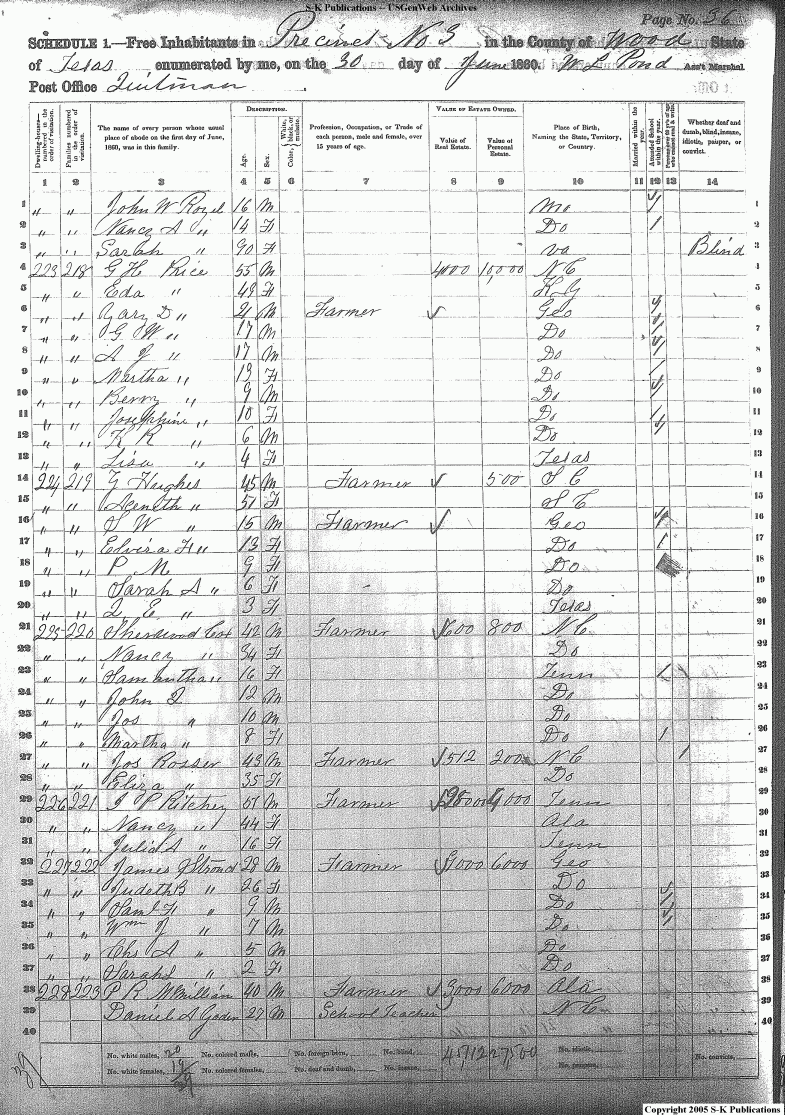 S-K Publications -- USGenWeb Archives
Page No. 36
SCHEDULE 1.—Free Inhabitants in Precinct No 3 in the County of Wood State
of Texas enumerated by me, on the 30 day of June 1860. W L Pond Ass't Marshal.
Post Office Quitman
DESCRIPTION. VALUE OF ESTATE OWNED.
Dwelling-houses—numbered in the order of visitation. Families numbered in the order of visitation. The name of every person whose usual place of abode on the first day of June, 1860, was in this family. Age. Sex. Color, {White, black, or mulatto. Profession, Occupation, or Trade of each person, male and female, over 15 years of age. Value of Real Estate. Value of Personal Estate. Place of Birth, Naming the State, Territory, or Country. Married within the year. Attended School within the year. Whether deaf and dumb, blind, insane, idiotic, pauper, or convict.
1 2 3 4 5 6 7 8 9 10 11 12 13 14
1 " " John W Royal 16 M Mo / 1
2 " " Nancy A " 14 F Do / 2
3 " " Sarah " 90 F Va Blind 3
4 223 218 G H Price 55 M 4000 10,000 N C 4
5 " " Eda " 49 F Ky 5
6 " " Gary D " 21 M Farmer Geo / 6
7 " " G W " 17 M Do / 7
8 " " A J " 17 M Do / 8
9 " " Martha " 13 F Do / 9
10 " " Berry " 9 M Do / 10
11 " " Josephine " 10 F Do / 11
12 " " K R " 6 M Do 12
13 " " Lisa " 4 F Texas 13
14 224 219 G Hughes 45 M Farmer 500 S C 14
15 " " Aseneth " 51 F S C 15
16 " " S W " 15 M Farmer Geo / 16
17 " " Elvira F " 13 F Do / 17
18 " " P M 9 F Do 18
19 " " Sarah A " 6 F Do 19
20 " " Q E " 3 F Texas 20
21 225 220 Sherwood Cox 42 M Farmer 600 800 N C 21
22 " " Nancy " 34 F Do 22
23 " " Samantha " 16 F Tenn / 23
24 " " John Q 12 M Do 24
25 " " Jos " 10 M Do 25
26 " " Martha " 8 F Do / 26
27 " " Jos Rosser 43 M Farmer 512 200 N C / 27
28 " " Eliza " 35 F Do 28
29 226 221 J P Ritchey 61 M Farmer Tenn 29
30 " " Nancy " 44 F Ala 30
31 " " Julia A " 16 F Tenn 31
32 227 222 James J Stroud 28 M Farmer 9000 6000 Geo 32
33 " " Judeth B " 26 F Do 33
34 " " Saml H " 9 M Do / 34
35 " " Wm J " 7 M Do / 35
36 " " Chs A " 5 M Do 36
37 " " Sarah " 2 F Do 37
38 228 223 P R McMillian 40 M Farmer 3000 6000 Ala 38
39 Daniel A 27 M School Teacher N C 39
40 40
No. white males, 20 No. colored males, No. foreign born, No. blind, No. idiotic, No. convicts,
No. white females, 19 No. colored females, No. deaf and dumb, No. insane, No. paupers,
39
Copyright 2005 S-K Publications